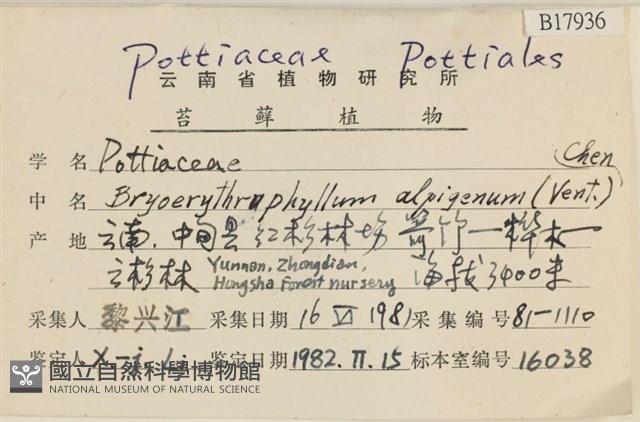 B17936
Pottiaceae Pottiales
云南省植物研究所
苔藓植物
学名 Pottiaceae Chen
中名 Bryoerythrophyllum alpigenum (Vent.)
产地 云南, 中甸县红杉林场 箭竹—桦木—
云杉林 Yunnan, Zhongdian, Hongsha Forest nursery 海拔3400米
采集人 黎兴江 采集日期 16 VI 1981 采集编号 81-1110
鉴定人 X-j. Li 鉴定日期 1982.II.15 标本室编号 16038
國立自然科學博物館
NATIONAL MUSEUM OF NATURAL SCIENCE